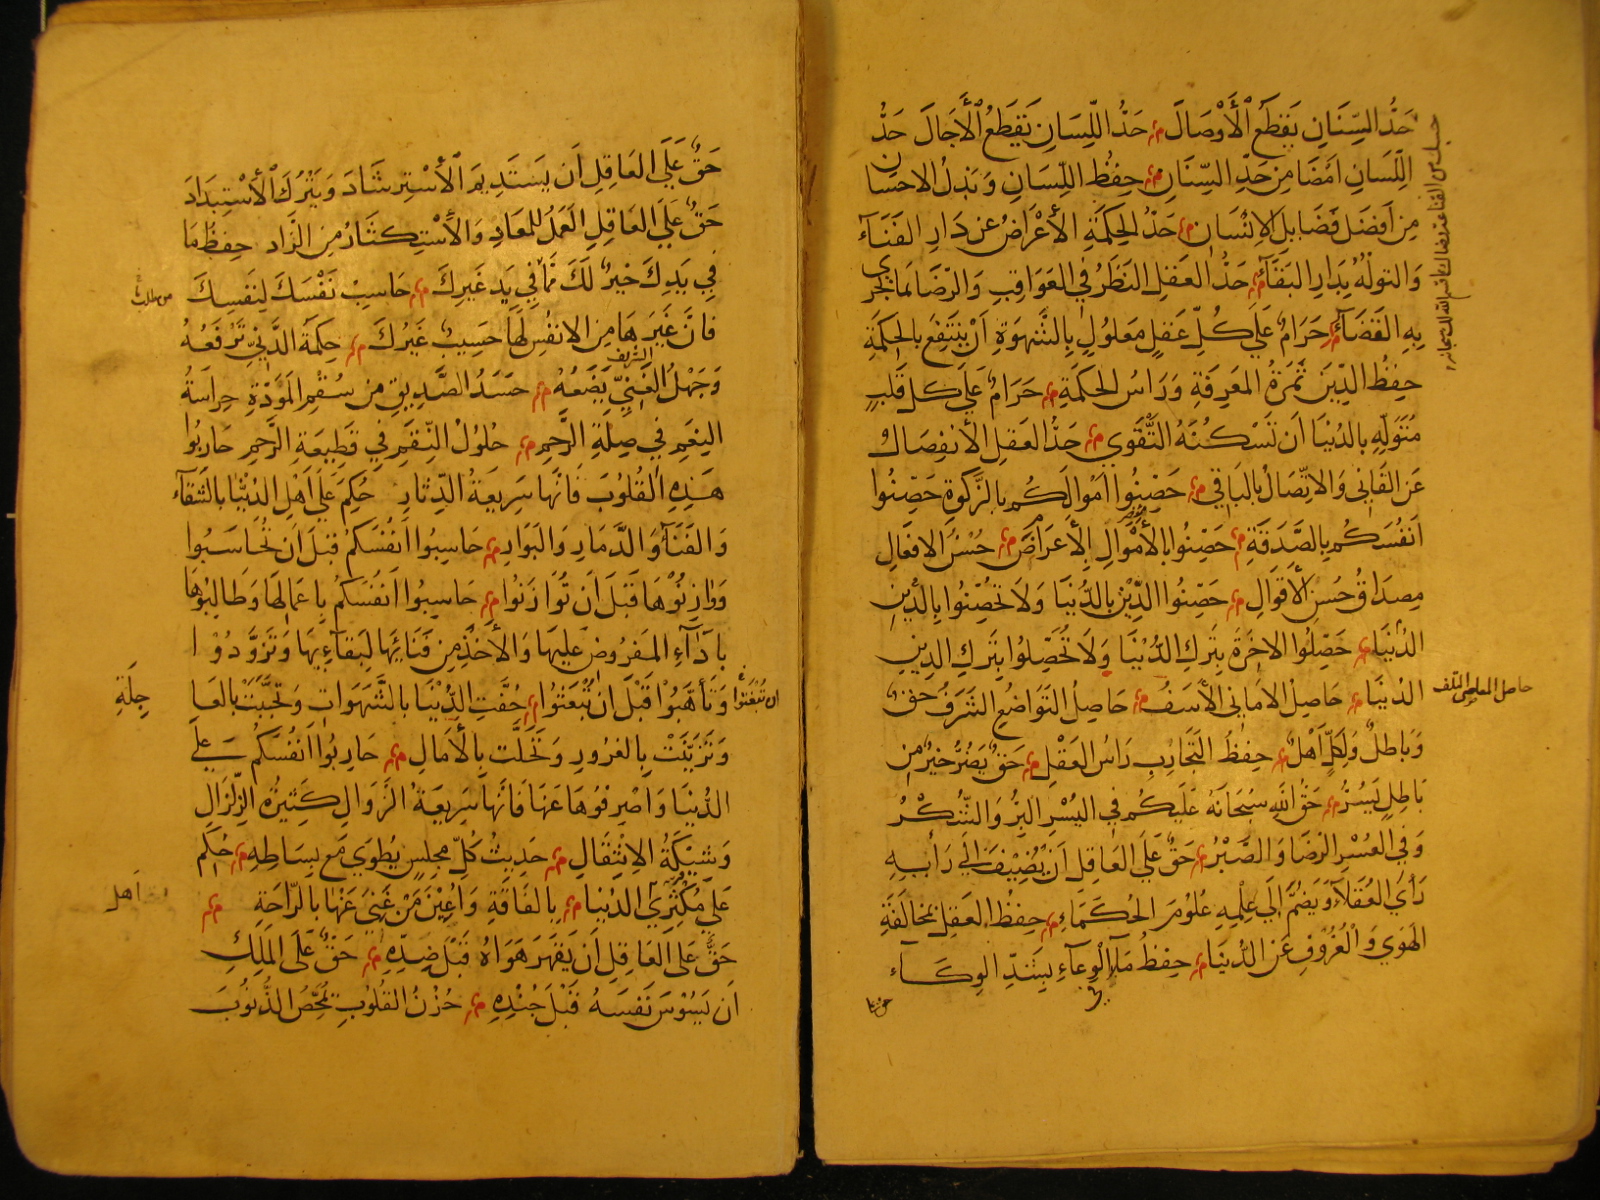 حَدُّ السِّنَانِ يَقْطَعُ الْأَوْصَالَ حَدُّ اللِّسَانِ يَقْطَعُ الْآجَالَ حَدُّ
اللِّسَانِ اَمْضَا مِنْ حَدِّ السِّنَانِ حِفْظُ اللِّسَانِ وَبَذْلُ الاحْسَانِ
مِنْ اَفْضَلِ فَضَايلِ الاِنْسَانِ حَدُّ الحِكمَةِ الأَعْرَاضُ عَن دَارِ الفَنَآءِ
وَالتولُّهُ بِدَارِ البَقَآءِ حَدُّ العَقلِ النَظَرُ فِي العَوَاقِبِ وَالرّضَا بمَا يَجْرى
بِهِ القَضَآءُ حَرَامٌ عَلَى كُلِّ عَقلٍ مَعلُولٍ بِالشَّهوَةِ اَنْ يَنْتَفِعَ بِالحِكمَةِ
حِفظُ الدِّينِ ثَمَرَةُ المَعرِفَةِ وَرَاسُ الحِكمَةِ حَرَامٌ عَلَى كلِّ قَلبٍ
مُتَوَلِّهٍ بِالدُنيَا اَن تَسْكُنَهُ التَّقْوَى حَدُّ العَقلِ الأنفِصَالُ
عَنِ الفَانِى وَالاتِّصَالُ بِالبَاقِي حَصّنُوا اَمْوَالَكُم بِالزَّكوةِ حَصِّنُوا
اَنفُسَكُم بِالصَّدَقَةِ حَصِّنُوا بِالأَمْوَالِ الأَعرَاضَ حُسْنُ الافعَالِ
مِصدَاقُ حُسنِ الأَقوَالِ حَصِّنُوا الدِّيْنَ بِالدُّنيَا وَلَا تُحَصِّنُوا بِالدِّينِ
الدُنيَا حَصِّلُوا الاخِرَةَ بِتَركِ الدُّنيَا وَلَا تُحَصِّلُوا بِتَركِ الدِينِ
الدُنيَا حَاصِلُ الامَانِى الأَسَفُ حَاصِلُ التَوَاضُعِ الشَرَفُ حَقٌ
وَبَاطِلٌ وَلِكُلٍّ اَهلٌ حِفظُ التَّجَارِبِ رَاسُ العَقْلِ حَقٌ يَضُرُّ خَيْرٌ مِن
بَاطِلٍ يَسُرُّ حَقُّ اللهِ سُبحَانَهُ عَلَيكُم فِي اليُسْرِ البِرُّ وَالشُكْرُ
وَفِي العُسْرِ الرّضَا وَالصَّبْرُ حَقٌّ عَلَى العَاقِلِ اَنْ يُضِيْفَ الَى رَأيِهِ
رَأيَ العُقَلآءِ وَيَضُمَّ اِلَى عِلْمِهِ عُلُوْمَ الحُكَمَاءِ حِفظُ العَقلِ بمُخَالَفَةِ
الهَوَى وَالْعُزُوفِ عَنِ الدُنيَا حِفظُ مَا فِى الْوِعَآءِ بِشَدِّ الوِكَاءِ
حسبك من القناعة غناك بما قسم الله لك سبحانه
حاصل المعاصى التلف
حَقٌّ عَلَى العَاقِلِ اَن يَستَدِيمَ الْأسْتِرشَادَ وَيَترُكَ الْأسْتِبدَادَ
حَقٌّ عَلَى العَاقِلِ العَمَلُ للمَعَادِ وَالأستِكثَارُ مِنَ الزَاد حِفظُ مَا
فِي يَدِكَ خَيرٌ لَكَ مِمَّا فِي يَدِ غَيرِكَ حَاسِبْ نَفْسَكَ لِنَفسِكَ
من طلب
فَانَّ غَيرَهَا مِنَ الانفُسِ لَهَا حَسِيبٌ غَيرُكَ حِكمَةُ الدَّنِيِّ تَرفَعُهُ
الشريف
وَجَهلُ الغَنِيِّ يَضَعُهُ حَسَدُ الصَّدِيقِ مِن سُقْمِ المَوَدَّةِ حِرَاسَةُ
النِعَمِ فِي صِلَةِ الرَّحِمِ حُلُولُ النِّقَمِ فِي قَطِيعَةِ الرَّحِمِ حَارِبُوا
هَذِهِ القُلُوبَ فَانَّهَا سَرِيعَةُ الدِّثَارِ حُكِمَ عَلَى اَهْلِ الدُنْيَا بِالشَقَآءِ
وَالفَنَآءِ وَالدَّمَارِ وَالبَوَارِ حَاسِبُوا اَنفُسَكُم قَبلَ اَن تُحَاسَبُوا
وَوَازِنُوْهَا قَبَلَ اَن تُوَازَنُوا حَاسِبُوا اَنفُسَكُم بِاَعمَالِهَا وَطَالِبُوْهَا
بِاَدَآءِ المَفرُوضِ عَلَيهَا وَالأخذِ مِن فَنَائِهَا لِبَقَاءِهَا وَتَزَوَّدُوْا
وَتَأَهَّبُوْا قَبْلَ اَنْ تُبْعَثُوا حُفَّتِ الدُّنْيَا بِالشَّهَوَاتِ وَتَحَبَّبَتْ بِالعَاجِلَةِ
ان تُبْعَثُوا
وَتَزَيَّنَتْ بِالغُرُورِ وَتَحَلَّت بِالأمَالِ حَارِبُوا اَنفُسَكُم عَلَى
الدُّنيَا وَاصرِفُوهَا عَنهَا فَانَّهَا سَرِيعَةُ الزَّوَالِ كَثِيرَةُ الزِّلزَالِ
وَشِيكَةُ الاِنْتِقَالِ حَدِيثُ كُلِّ مَجلِسٍ يُطوَى مَع بِسَاطِهِ حُكِمَ
عَلَى مُكثِرِي الدُنْيَا بِالفَاقَةِ وَاُعِيْنَ مَنْ غَنِىَ عَنْهَا بِالرَّاحَةِ
اَهل
حَقٌّ عَلَى العَاقِلِ اَن يَقهَرَ هَوَاهُ قَبْلَ ضِدِّهِ حَقٌّ عَلَى المَلِكِ
اَن يَسُوْسَ نَفسَهُ قَبْلَ جُنْدِهِ حُزْنُ القُلُوبِ يُمَحِّصُ الذُّنُوبَ